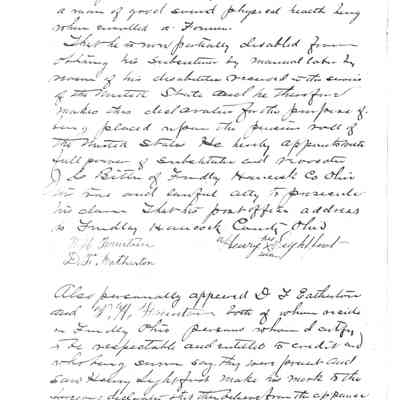 a man of good sound physical health being
when enrolled a Farmer.
That he is now partially disabled from
obtaining his subsistence by manual labor by
reason of his disabilities received in the service
of the United States and he therefore
makes this declaration for the purpose of
being placed upon the pension roll of
the United States He hereby appoints with
full power of substitution and revocation
J. S. of Findlay Hancock Co Ohio
his true and lawful atty to prosecute
his claim That his post office address
is Findlay Hancock County Ohio
W. H. Fountain Henry his Lightfoot
D. F. mark
Also personally appeared D F
and W. H. Fountain both of whom reside
in Findlay Ohio persons whom I certify
to be respectable and entitled to credit and
who being sworn say they were present and
saw Henry Lightfoot make his mark to the
foregoing declaration that they believe from the appearance